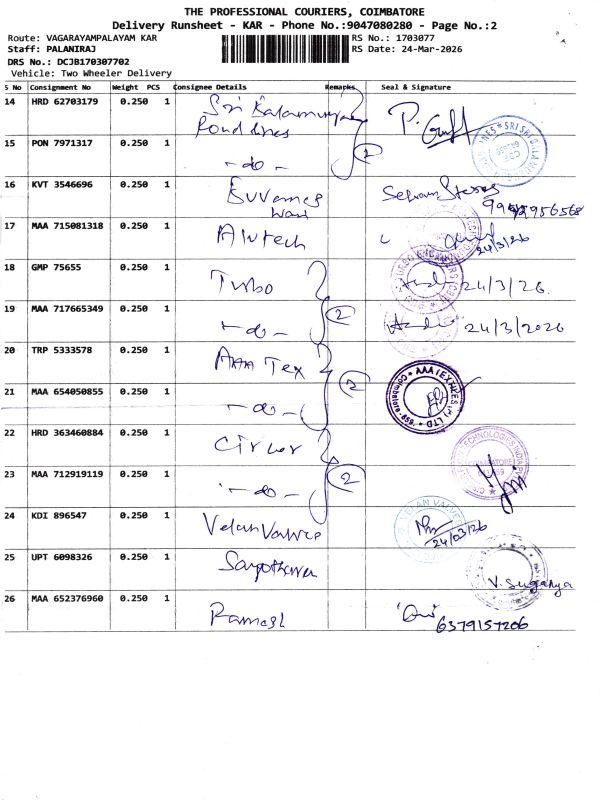 THE PROFESSIONAL COURIERS, COIMBATORE
Delivery Runsheet - KAR - Phone No.:9047080280 - Page No.:2
Route: VAGARAYAMPALAYAM KAR
RS No.: 1703077
Staff: PALANIRAJ
RS Date: 24-Mar-2026
DRS No.: DCJB170307702
Vehicle: Two Wheeler Delivery
S No Consignment No Weight PCS Consignee Details Remarks Seal & Signature
14 HRD 62703179 0.250 1 Sri
15 PON 7971317 0.250 1 -do- 2
16 KVT 3546696 0.250 1
17 MAA 715081318 0.250 1 Alutech
24/3/26
18 GMP 75655 0.250 1 Turbo 24/3/26.
19 MAA 717665349 0.250 1 -do- 2 24/3/2026
20 TRP 5333578 0.250 1 AAA Tex
21 MAA 654050855 0.250 1 -do- 2
22 HRD 363460884 0.250 1
23 MAA 712919119 0.250 1 -do- 2
24 KDI 896547 0.250 1 Velan Valves 24/03/26
25 UPT 6098326 0.250 1 V. Suganya
26 MAA 652376960 0.250 1 Ramesh
6379157206